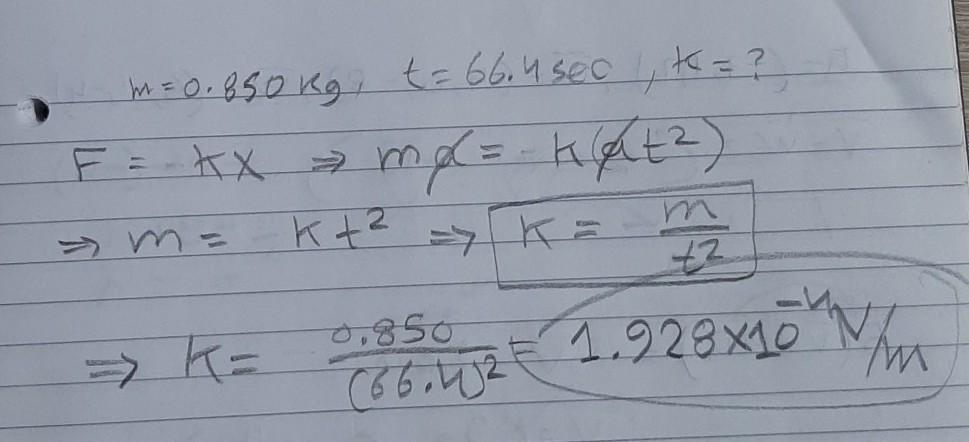 m = 0.850 Kg, t = 66.4 sec, K = ?
F = Kx ⇒ ma = K(at²)
⇒ m = Kt² ⇒ K = m/t²
⇒ K = 0.850/(66.4)² = 1.928×10⁻⁴ N/m